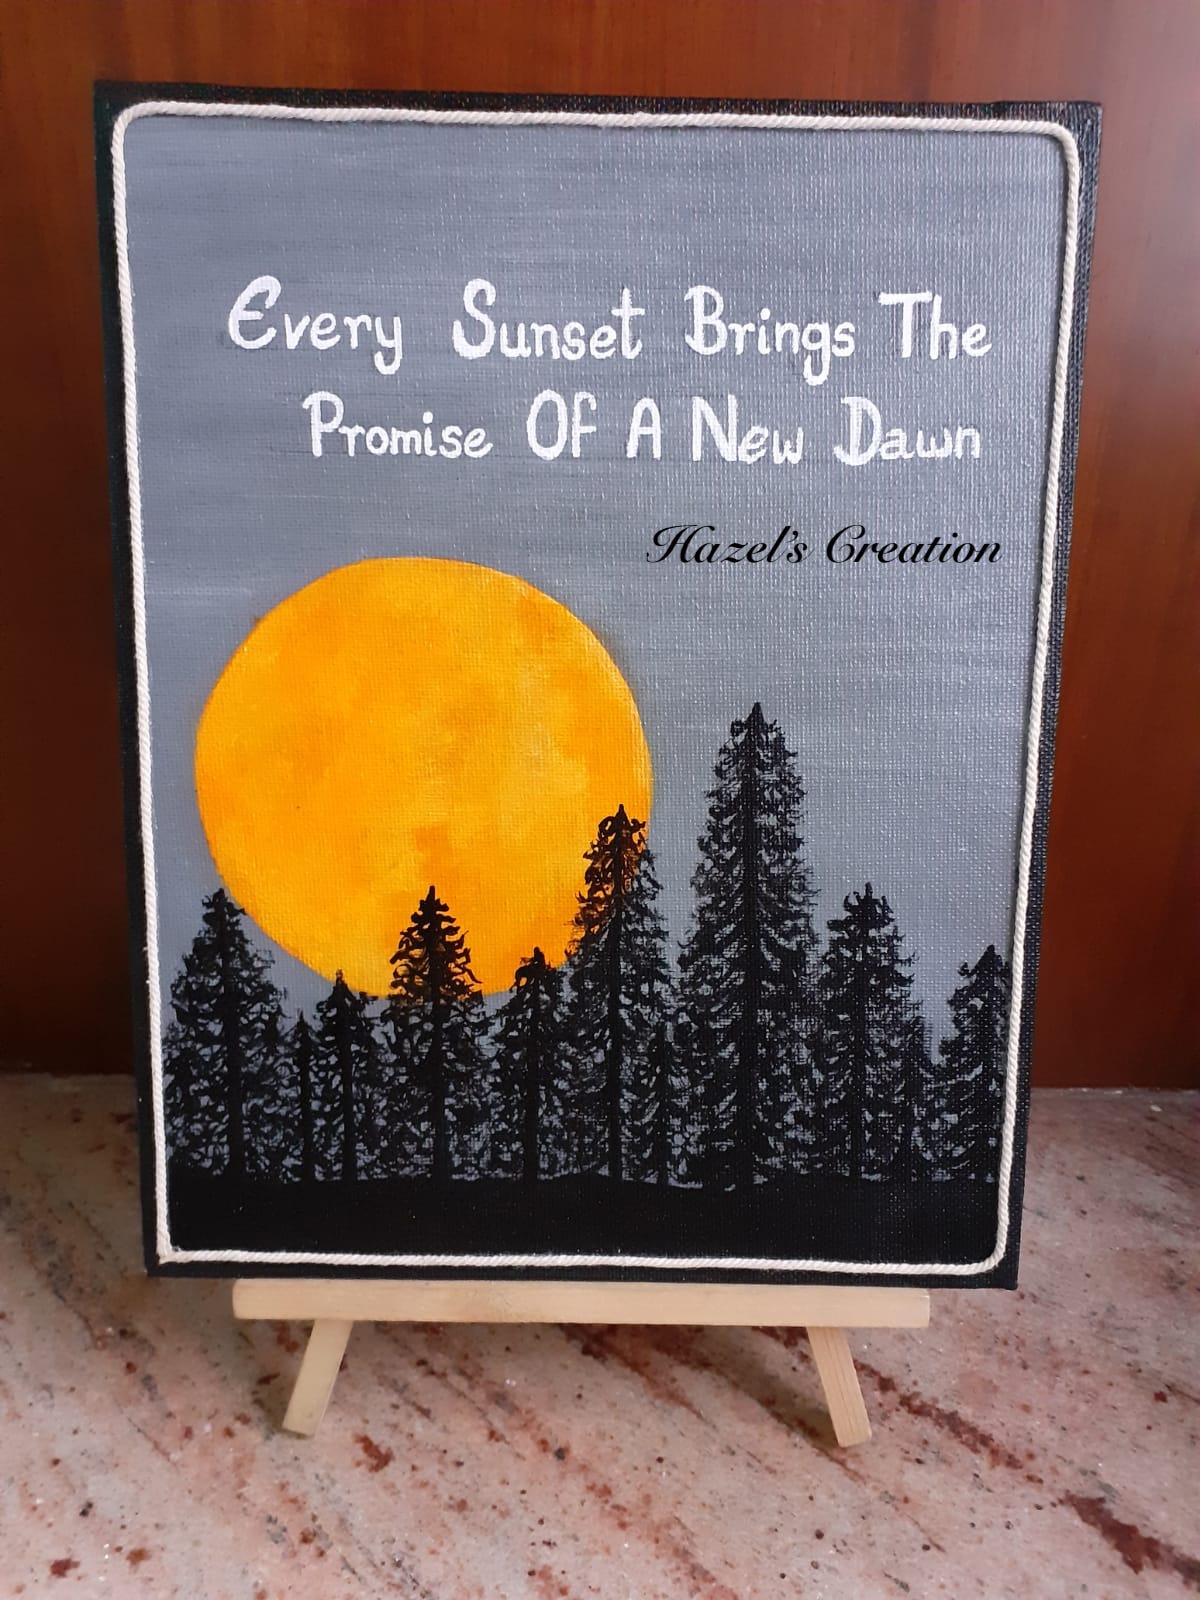 Every Sunset Brings The
Promise Of A New Dawn
Hazel's Creation